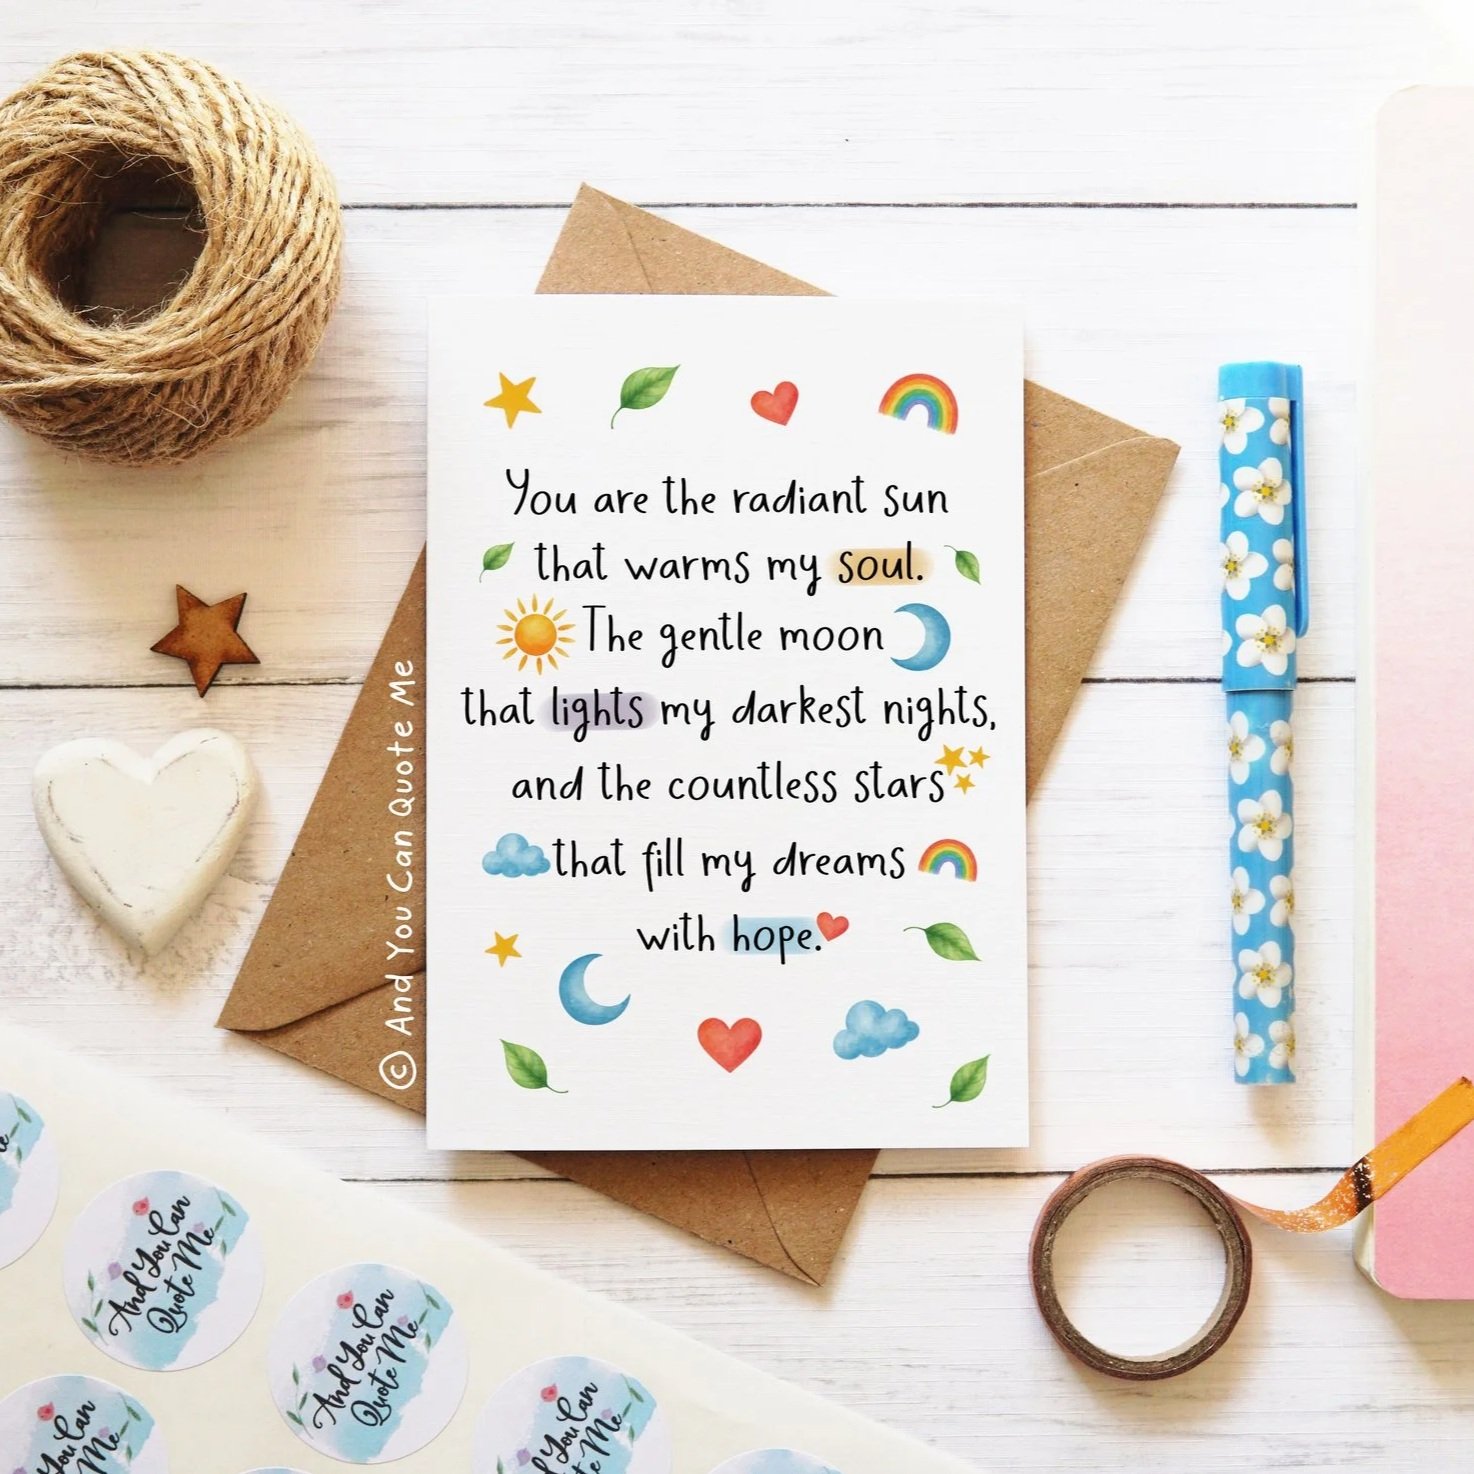 You are the radiant sun
that warms my soul.
The gentle moon
that lights my darkest nights,
and the countless stars
that fill my dreams
with hope.
© And You Can Quote Me
And You Can
Quote Me
And You Can
Quote Me
And You Can
Quote Me
You Can
Me